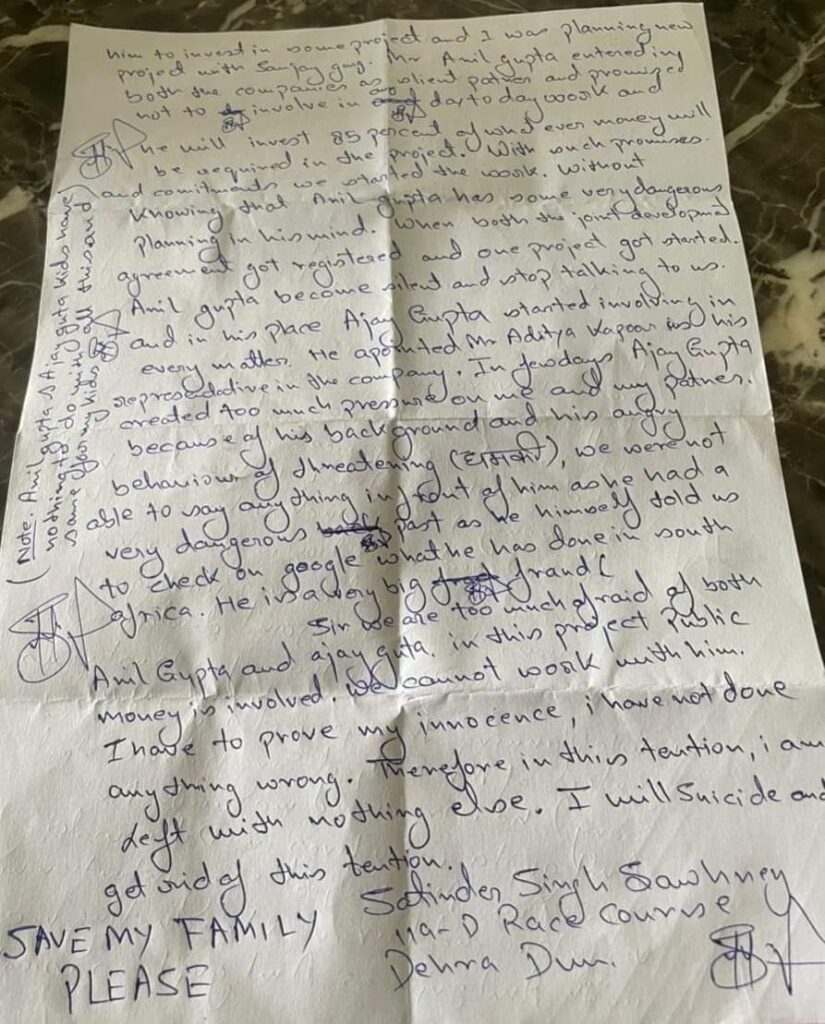 him to invest in some project and I was planning new
project with Sanjay garg. Mr Anil gupta entered in
both the companies as silent patner and promised
not to involve in day to day work and
he will invest 85 percent of what ever money will
be required in the project. With such promises
and comitments we started the work. Without
Knowing that Anil gupta has some very dangerous
planning in his mind. When both the joint development
agreement got registered and one project got started.
Anil gupta become silent and stop talking to us.
and in his place Ajay Gupta started involving in
every matter. He apointed Mr Aditya Kapoor as his
representative in the company. In few days Ajay Gupta
created too much pressure on me and my patner.
because of his background and his angry
behaviour of threatening (धमकी), we were not
able to say anything in front of him as he had a
very dangerous past as he himself told us
to check on google what he has done in south
africa. He is a very big fraud (
Sir we are too much afraid of both
Anil Gupta and ajay guta. in this project Public
money is involved. We cannot work with him.
I have to prove my innocence, i have not done
anything wrong. Therefore in this tention, i am
left with nothing else. I will suicide and
get rid of this tention.
Satinder Singh Sawhney
119-D Race Course
Dehra Dun.
SAVE MY FAMILY
PLEASE
(Note. Anil gupta & Ajay guta kids have
nothing to do with all this and
same for my kids)